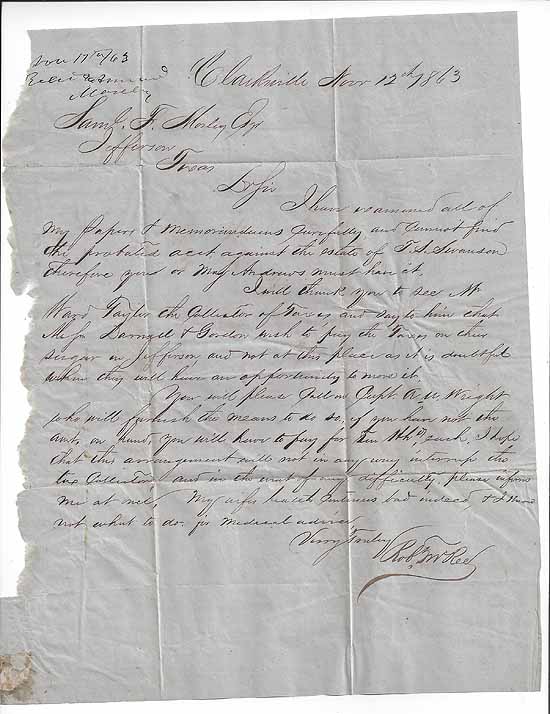 Nov 17th/63
Mosely
Clarksville Nov 12th 1863
Saml. F. Mosley Esqr
Jefferson
Texas
Dr Sir
I have examined all of
My Papers & Memorandums Carefully and Cannot find
the probated acct against the estate of T. S. Swanson
therefore you or May Andrews must have it.
I will thank you to see Mr
Ward Taylor the Collector of Taxes and say to him that
Messrs Darnell & Gordon wish to pay the Taxes on their
sugar in Jefferson and not at this place as it is doubtful
when they will have an opportunity to move it.
You will please call on Capt. A. U. Wright
who will furnish the means to do so, if you have not the
amt. on hand, you will have to pay for Ten Hhds each, I hope
that this arrangement will not in any way interrupt the
tax Collector and in the event of any difficulty, please inform
me at once, My wifes health Continues bad indeed, & I know
not what to do for medical advice,
Very Truly
Robt.